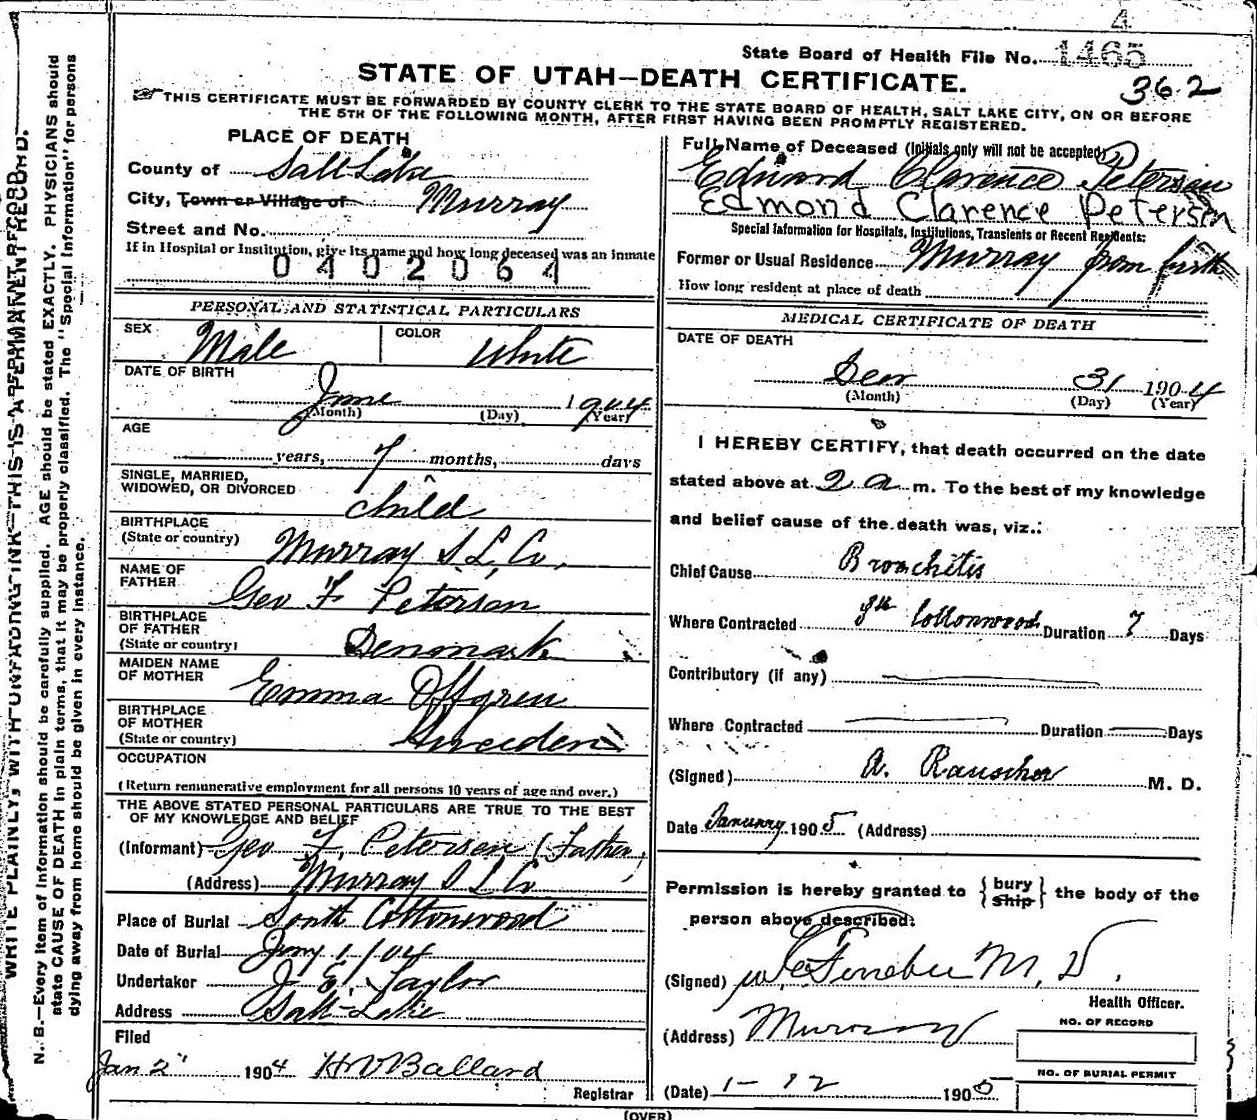 4
State Board of Health File No. 1465
STATE OF UTAH—DEATH CERTIFICATE.
362
THIS CERTIFICATE MUST BE FORWARDED BY COUNTY CLERK TO THE STATE BOARD OF HEALTH, SALT LAKE CITY, ON OR BEFORE
THE 5TH OF THE FOLLOWING MONTH, AFTER FIRST HAVING BEEN PROMPTLY REGISTERED.
WRITE PLAINLY, WITH UNFADING INK—THIS IS A PERMANENT RECORD.
N. B.—Every item of information should be carefully supplied. AGE should be stated EXACTLY. PHYSICIANS should
state CAUSE OF DEATH in plain terms, that it may be properly classified. The "Special Information" for persons
dying away from home should be given in every instance.
PLACE OF DEATH
County of Salt Lake
City, Town or Village of Murray
Street and No.
If in Hospital or Institution, give its name and how long deceased was an inmate
0402064
PERSONAL AND STATISTICAL PARTICULARS
SEX Male COLOR White
DATE OF BIRTH
June 1904
(Month) (Day) (Year)
AGE
years, 7 months, days
SINGLE, MARRIED,
WIDOWED, OR DIVORCED child
BIRTHPLACE
(State or country) Murray S. L. Co.
NAME OF
FATHER Geo F Peterson
BIRTHPLACE
OF FATHER
(State or country) Denmark
MAIDEN NAME
OF MOTHER Emma Offgren
BIRTHPLACE
OF MOTHER
(State or country) Sweeden
OCCUPATION
(Return remunerative employment for all persons 10 years of age and over.)
THE ABOVE STATED PERSONAL PARTICULARS ARE TRUE TO THE BEST
OF MY KNOWLEDGE AND BELIEF
(Informant) Geo F. Peterson (Father)
(Address) Murray S L Co
Place of Burial South Cottonwood
Date of Burial Jany 1/04
Undertaker J. E. Taylor
Address Salt Lake
Filed
Jan 2" 1904 H V Ballard
Registrar
Full Name of Deceased (Initials only will not be accepted)
Edward Clarence Peterson
Edmond Clarence Petersen
Special Information for Hospitals, Institutions, Transients or Recent Residents:
Former or Usual Residence Murray from birth
How long resident at place of death
MEDICAL CERTIFICATE OF DEATH
DATE OF DEATH
31 1904
(Month) (Day) (Year)
I HEREBY CERTIFY, that death occurred on the date
stated above at 2 a m. To the best of my knowledge
and belief cause of the death was, viz.:
Chief Cause Bronchitis
Where Contracted Cottonwood Duration 7 Days
Contributory (if any)
Where Contracted Duration Days
(Signed) A. Rauscher M. D.
Date January 1905 (Address)
Permission is hereby granted to { bury ship } the body of the
person above described:
(Signed) M. D.
Health Officer.
(Address) Murray
NO. OF RECORD
NO. OF BURIAL PERMIT
(Date) 1-12 1905
(OVER)